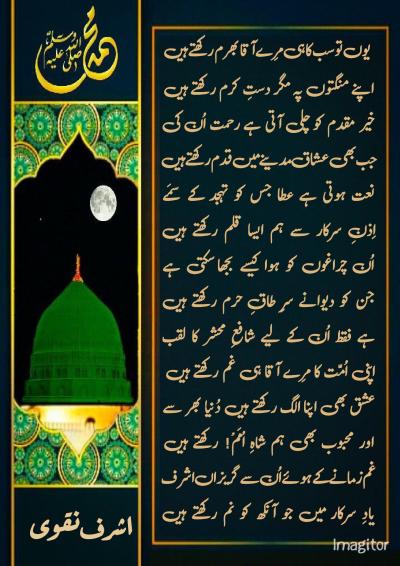 محمد صلی اللہ علیہ وسلم
یوں تو سب کا ہی مرے آقا بھرم رکھتے ہیں
اپنے منگتوں پہ مگر دستِ کرم رکھتے ہیں
خیر مقدم کو چلی آتی ہے رحمت اُن کی
جب بھی عشاق مدینے میں قدم رکھتے ہیں
نعت ہوتی ہے عطا جس کو تہجد کے سمے
اِذنِ سرکار سے ہم ایسا قلم رکھتے ہیں
اُن چراغوں کو ہوا کیسے بجھا سکتی ہے
جن کو دیوانے سرِ طاقِ حرم رکھتے ہیں
ہے فقط اُن کے لیے شافعِ محشر کا لقب
اپنی اُمّت کا مرے آقا ہی غم رکھتے ہیں
عشق بھی اپنا الگ رکھتے ہیں دُنیا بھر سے
اور محبوب بھی ہم شاہِ اُمَمؐ! رکھتے ہیں
غم زمانے کے ہوئے اُن سے گریزاں اشرف
یادِ سرکار میں جو آنکھ کو نم رکھتے ہیں
اشرف نقوی
Imagitor